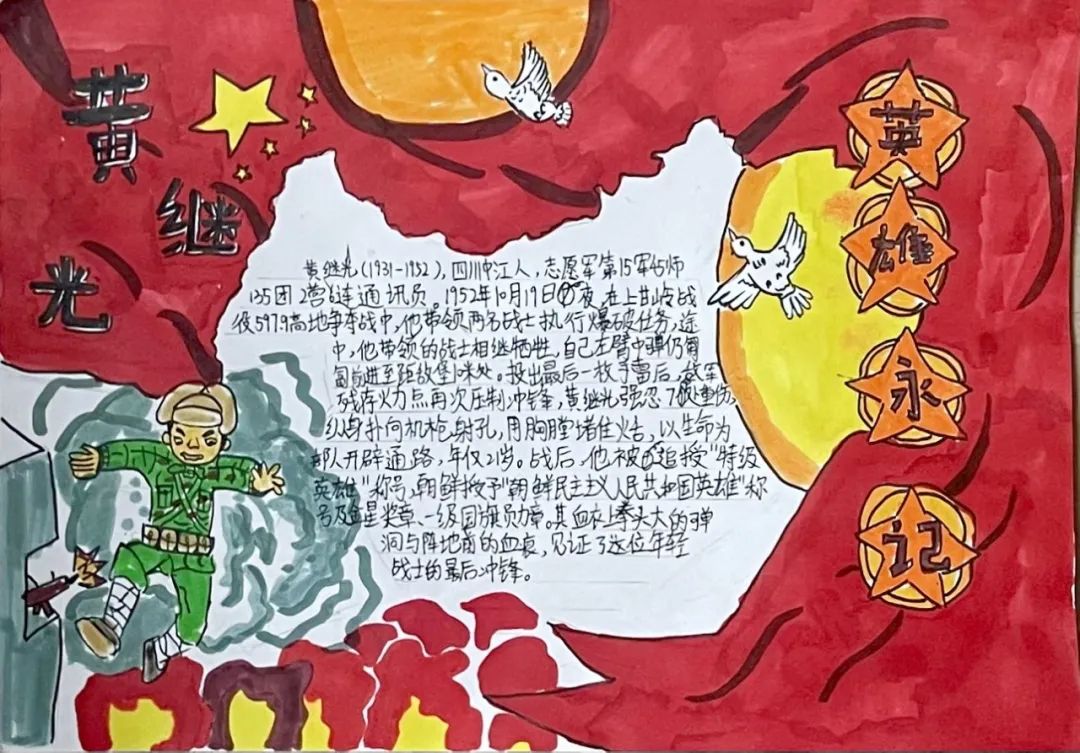 黄继光
英雄永记
黄继光(1931-1952),四川中江人,志愿军第15军45师
135团2营6连通讯员。1952年10月19日夜,在上甘岭战
役597.9高地争夺战中,他带领两名战士执行爆破任务,途
中,他带领的战士相继牺牲,自己左臂中弹仍匍
匐前进至距敌堡咪处。投出最后一枚手雷后,敌军
残存火力点再次压制冲锋,黄继光强忍7处重伤,
纵身扑向机枪射孔,用胸膛堵住火舌,以生命为
部队开辟通路,年仅21岁。战后,他被追授"特级
英雄"称号,朝鲜授予"朝鲜民主主义人民共和国英雄"称
号及金星奖章、一级国旗勋章。其血衣上拳头大的弹
洞与阵地前的血痕,见证了这位年轻
战士的最后冲锋。